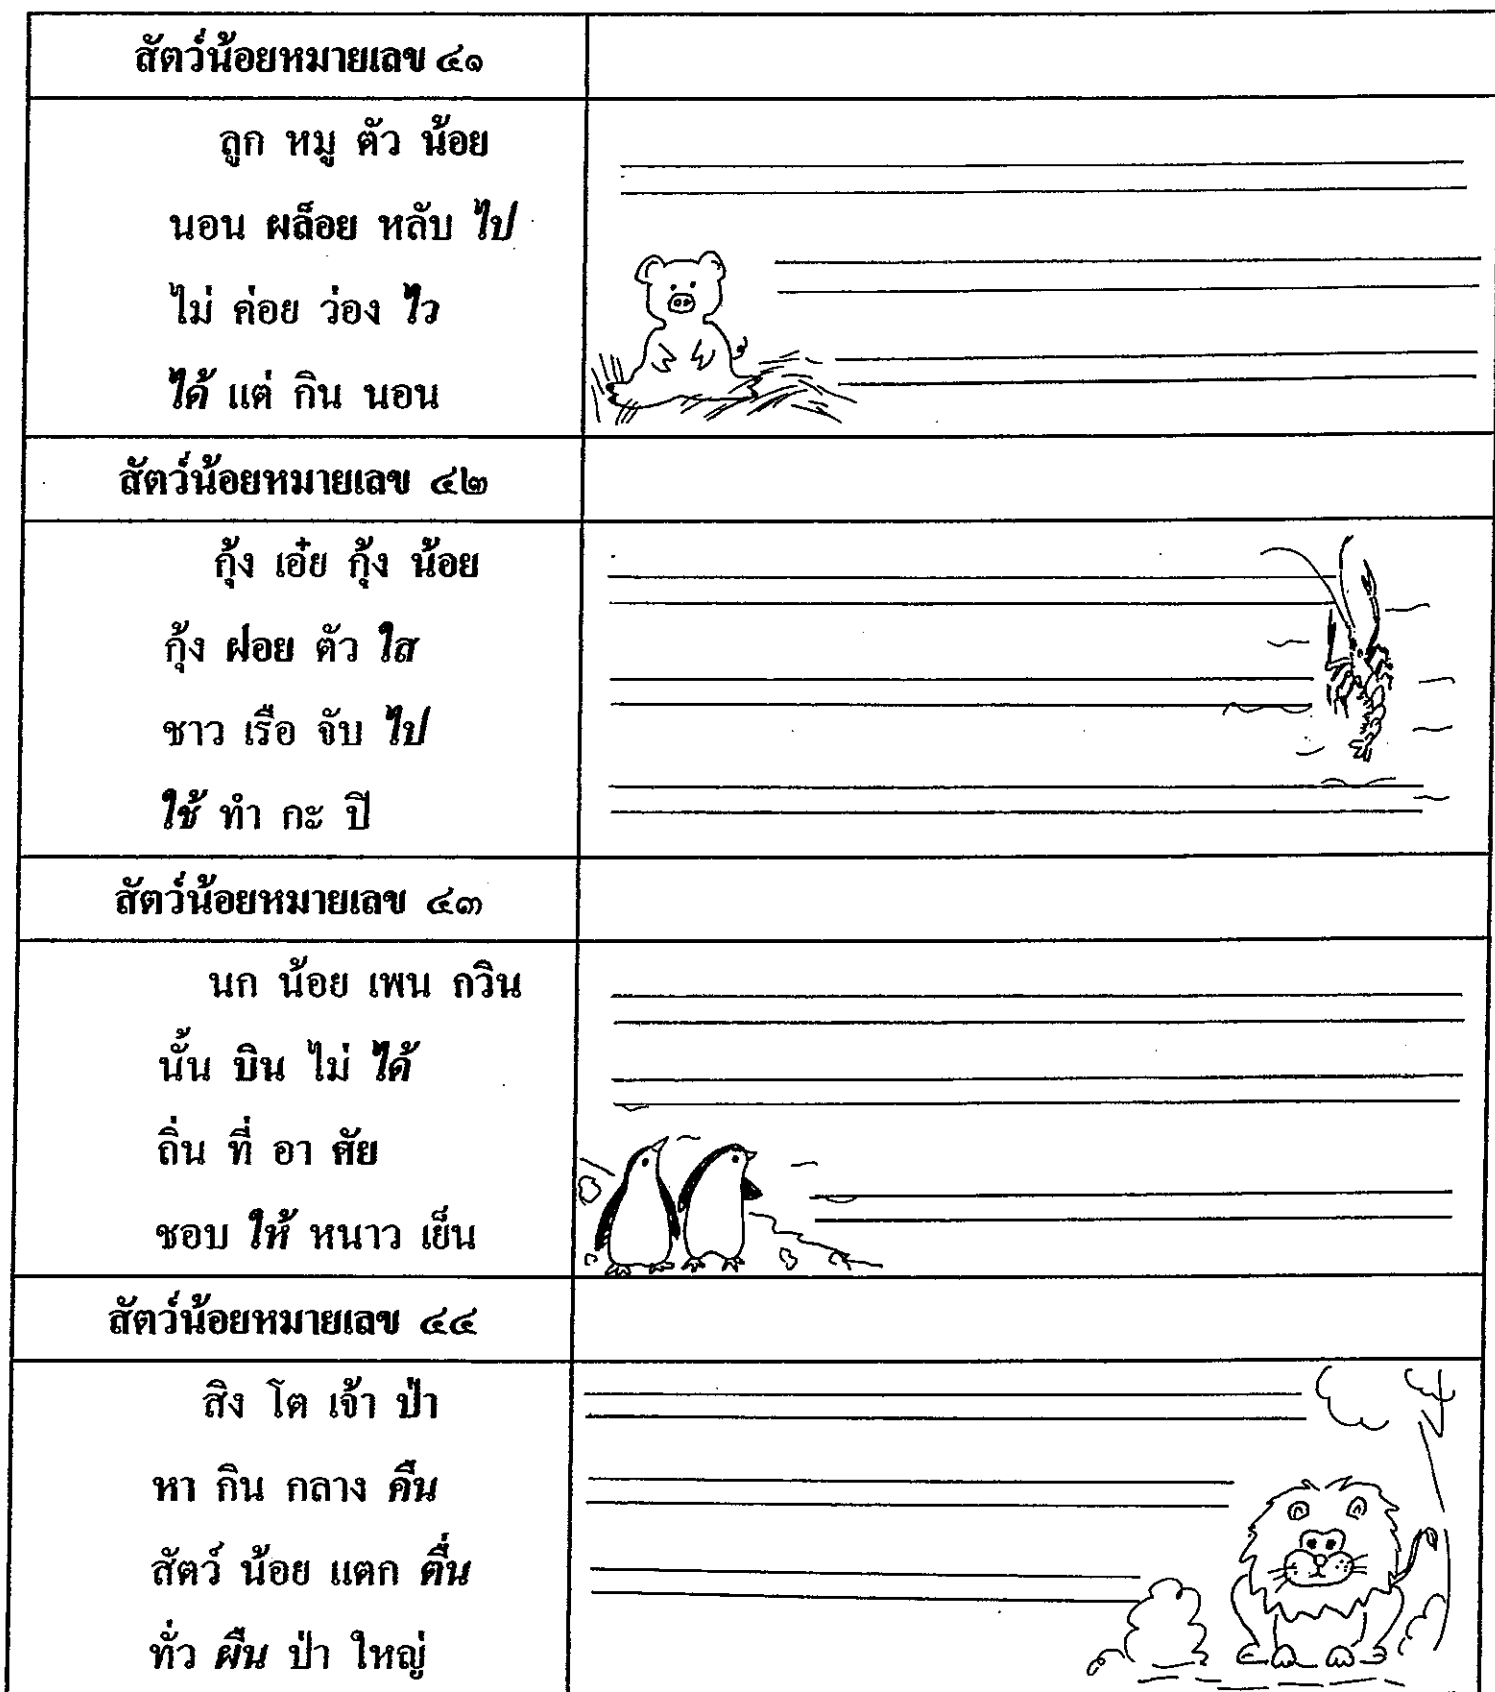 สัตว์น้อยหมายเลข ๔๑
ลูก หมู ตัว น้อย
นอน ผล็อย หลับ ไป
ไม่ ค่อย ว่อง ไว
ได้ แต่ กิน นอน
สัตว์น้อยหมายเลข ๔๒
กุ้ง เอ๋ย กุ้ง น้อย
กุ้ง ฝอย ตัว ใส
ชาว เรือ จับ ไป
ใช้ ทำ กะ ปี
สัตว์น้อยหมายเลข ๔๓
นก น้อย เพน กวิน
นั้น บิน ไม่ ได้
ถิ่น ที่ อา ศัย
ชอบ ให้ หนาว เย็น
สัตว์น้อยหมายเลข ๔๔
สิง โต เจ้า ป่า
หา กิน กลาง คืน
สัตว์ น้อย แตก ตื่น
ทั่ว ผืน ป่า ใหญ่